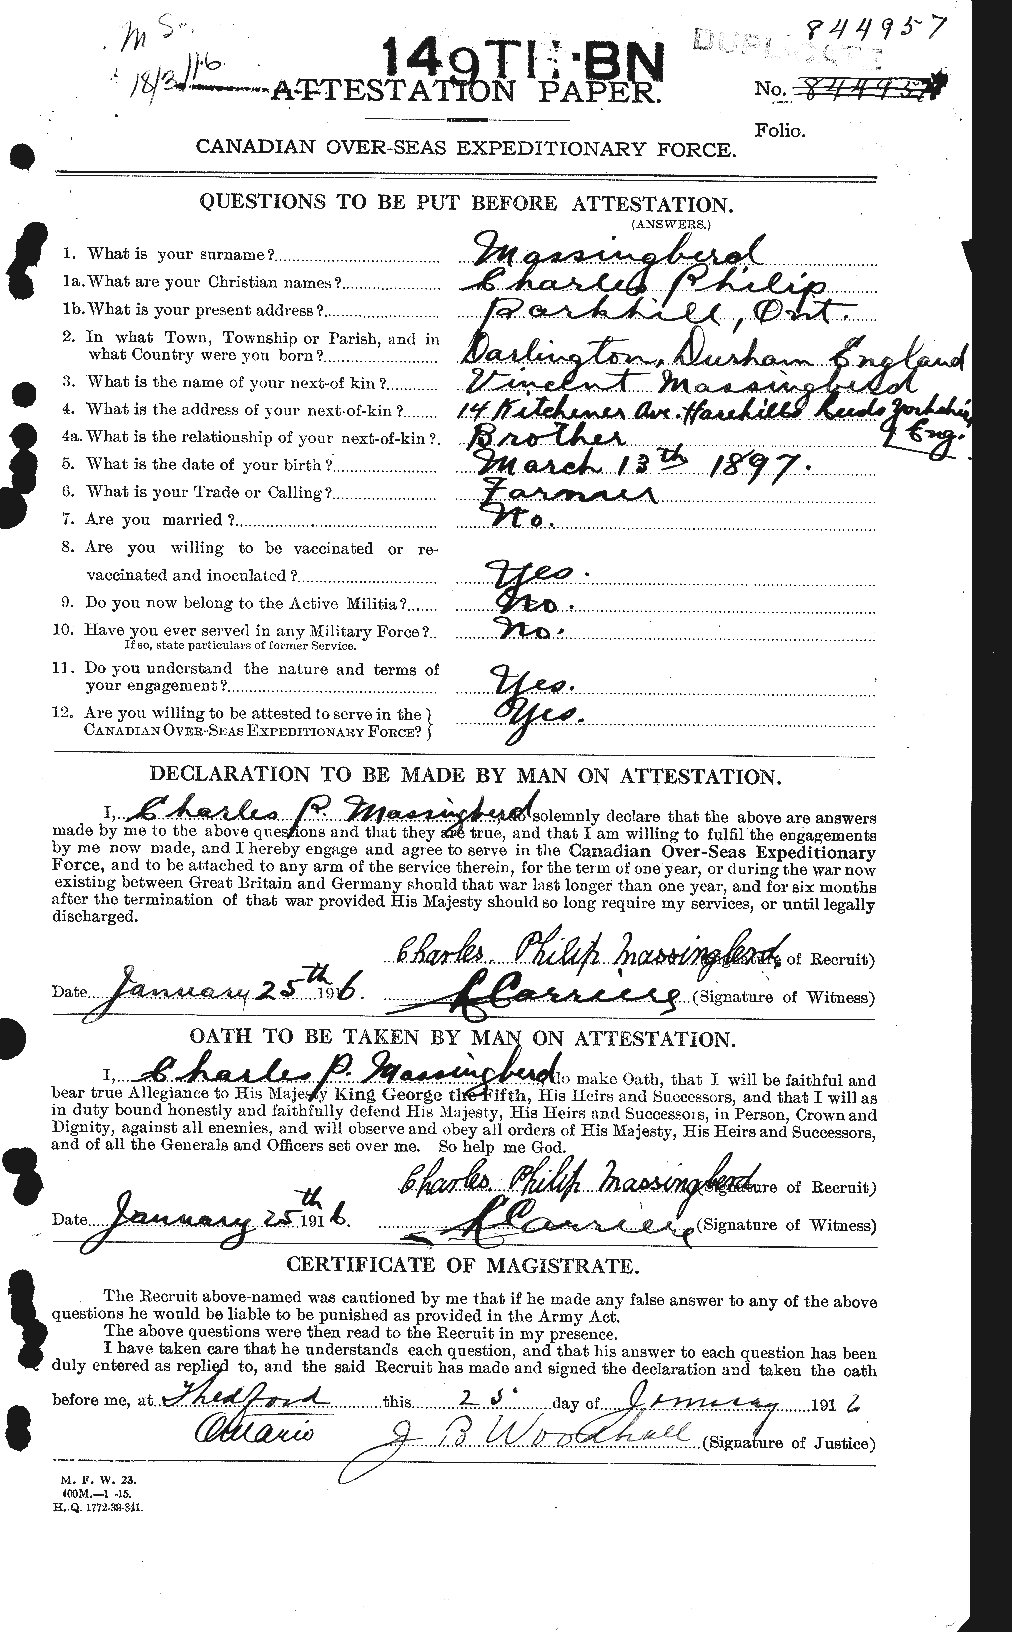 844957
M S.
18/3/16
149TH BN
DUPLICATE
ATTESTATION PAPER.
No. 844957
Folio.
CANADIAN OVER-SEAS EXPEDITIONARY FORCE.
QUESTIONS TO BE PUT BEFORE ATTESTATION.
(ANSWERS.)
1. What is your surname? Massingberd
1a. What are your Christian names? Charles Philip
1b. What is your present address? Parkhill, Ont.
2. In what Town, Township or Parish, and in
what Country were you born? Darlington, Durham England
3. What is the name of your next-of kin? Vincent Massingberd
4. What is the address of your next-of-kin? 14 Kitchener Ave. Harehills Leeds Yorkshire
Eng.
4a. What is the relationship of your next-of-kin? Brother
5. What is the date of your birth? March 13th 1897.
6. What is your Trade or Calling? Farmer
7. Are you married? No.
8. Are you willing to be vaccinated or re-
vaccinated and inoculated? Yes.
9. Do you now belong to the Active Militia? No.
10. Have you ever served in any Military Force? No.
If so, state particulars of former Service.
11. Do you understand the nature and terms of
your engagement? Yes.
12. Are you willing to be attested to serve in the
CANADIAN OVER-SEAS EXPEDITIONARY FORCE? Yes.
DECLARATION TO BE MADE BY MAN ON ATTESTATION.
I, Charles P. Massingberd solemnly declare that the above are answers
made by me to the above questions and that they are true, and that I am willing to fulfil the engagements
by me now made, and I hereby engage and agree to serve in the Canadian Over-Seas Expeditionary
Force, and to be attached to any arm of the service therein, for the term of one year, or during the war now
existing between Great Britain and Germany should that war last longer than one year, and for six months
after the termination of that war provided His Majesty should so long require my services, or until legally
discharged.
Charles Philip Massingberd (Signature of Recruit)
Date January 25th 1916. (Signature of Witness)
OATH TO BE TAKEN BY MAN ON ATTESTATION.
I, Charles P. Massingberd do make Oath, that I will be faithful and
bear true Allegiance to His Majesty King George the Fifth, His Heirs and Successors, and that I will as
in duty bound honestly and faithfully defend His Majesty, His Heirs and Successors, in Person, Crown and
Dignity, against all enemies, and will observe and obey all orders of His Majesty, His Heirs and Successors,
and of all the Generals and Officers set over me. So help me God.
Charles Philip Massingberd (Signature of Recruit)
Date January 25th 1916. (Signature of Witness)
CERTIFICATE OF MAGISTRATE.
The Recruit above-named was cautioned by me that if he made any false answer to any of the above
questions he would be liable to be punished as provided in the Army Act.
The above questions were then read to the Recruit in my presence.
I have taken care that he understands each question, and that his answer to each question has been
duly entered as replied to, and the said Recruit has made and signed the declaration and taken the oath
before me, at Thedford this 25 day of January 1916
Ontario J B Woodhall (Signature of Justice)
M. F. W. 23.
400M.—1-15.
H. Q. 1772-39-341.